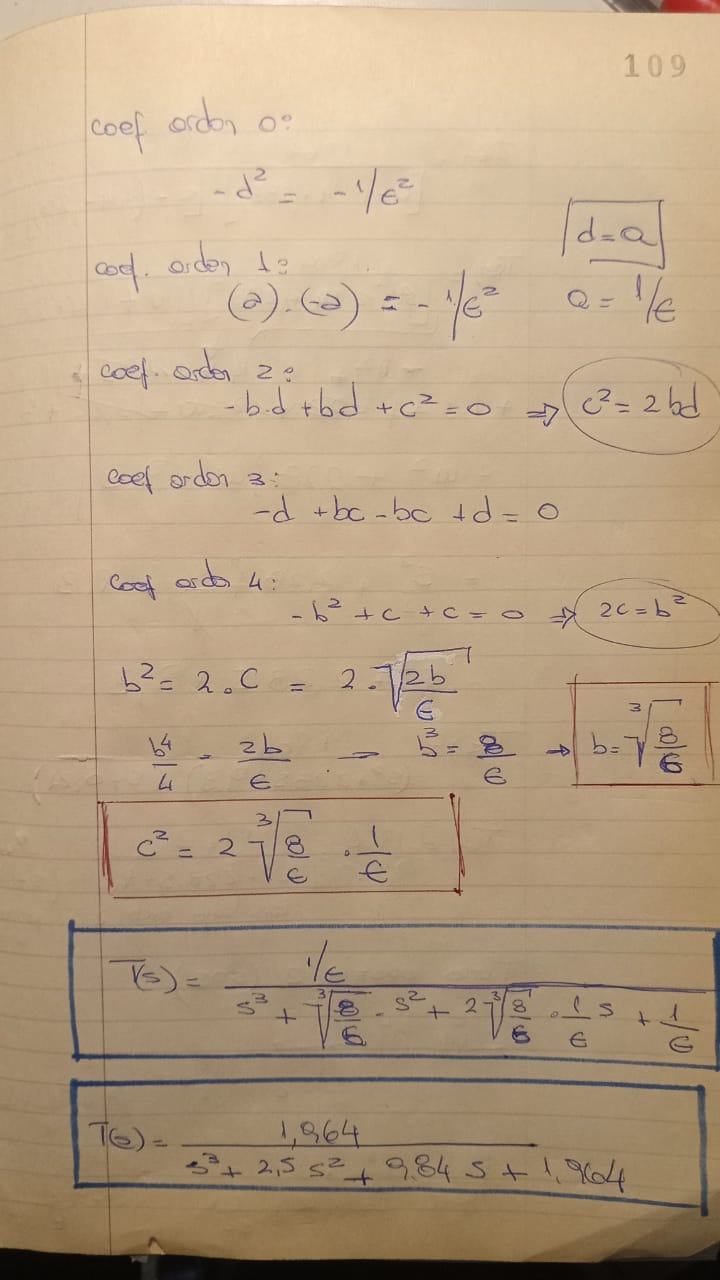 109
coef orden 0:
-d² = -1/ϵ²
d=a
coef. orden 1:
(a).(-a) = -1/ϵ²
a = 1/ϵ
coef. orden 2:
-b.d + bd + c² = 0 ⇒ c² = 2bd
coef orden 3:
-d + bc - bc + d = 0
coef orden 4:
-b² + c + c = 0 ⇒ 2c = b²
b² = 2.c = 2.√(2b/ϵ)
b⁴/4 = 2b/ϵ → b³ = 8/ϵ → b = ∛(8/ϵ)
c² = 2 ∛(8/ϵ) . 1/ϵ
T(s) = (1/ϵ) / (s³ + ∛(8/ϵ) . s² + 2 ∛(8/ϵ) . 1/ϵ s + 1/ϵ)
T(s) = 1,964 / (s³ + 2,5 s² + 9,84 s + 1,964)